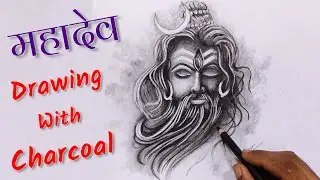 महादेव
Drawing
With
Charcoal